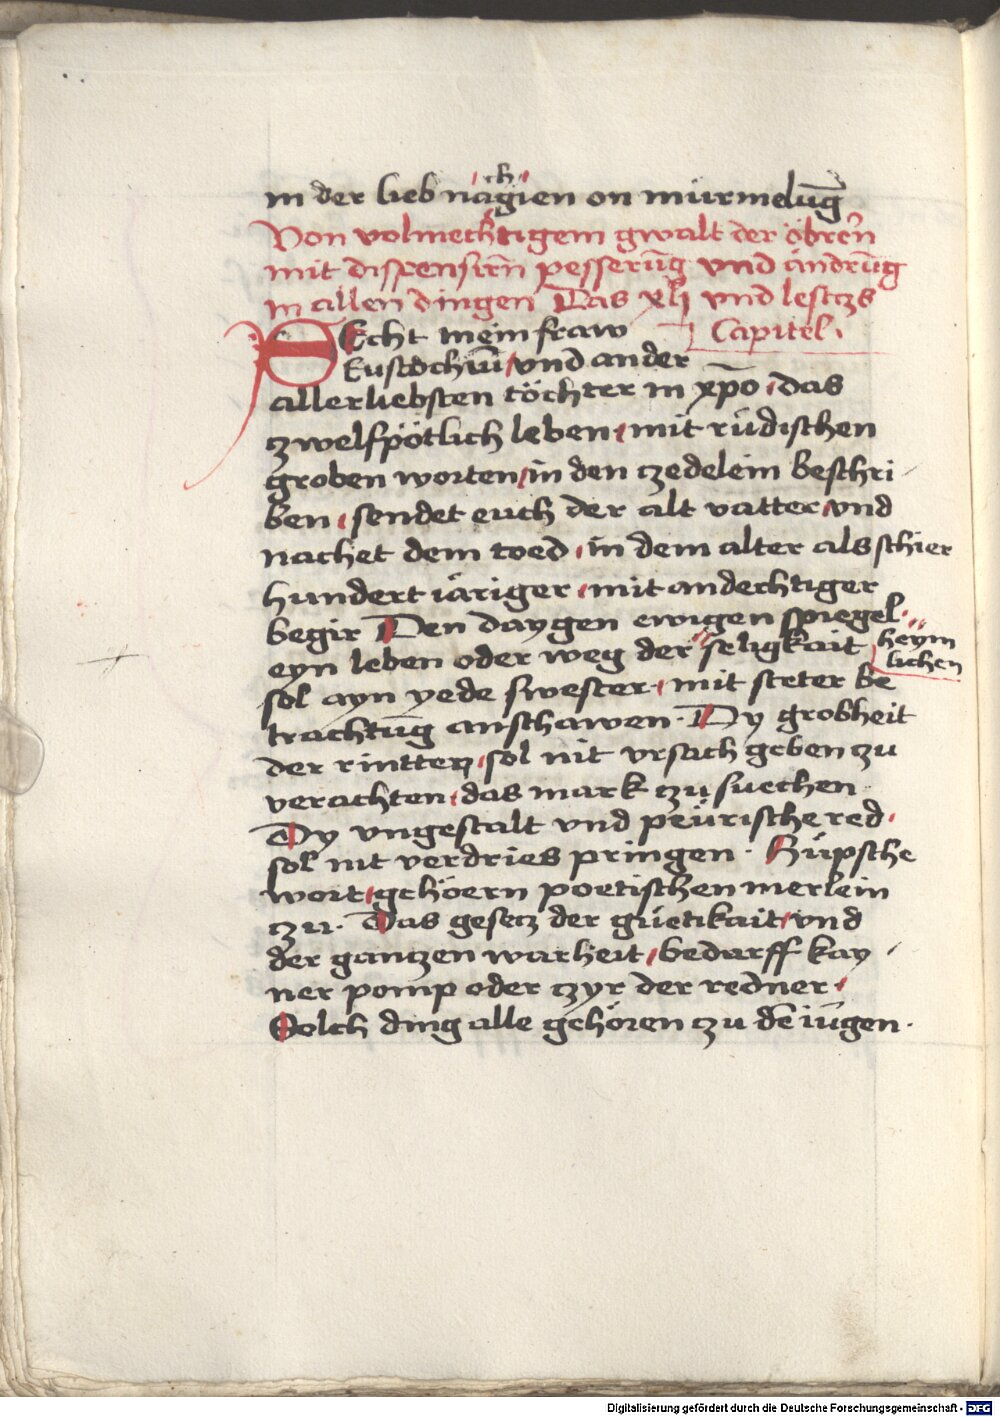 in der lieb nachgien on mürmelūg
Von volmechtigem gwalt der öbren̄
mit dispensirn̄ pesserūg vnd ändrūg
in allen dingen Das xlj vnd lestczs
Capitel.
SEcht mein fraw
Eustochiū vnd ander
allerliebsten töchter in xp̄o das
zwelfpötlich leben mit rüdischen
groben worten in den czedelein beschri
ben sendet euch der alt vatter vnd
nachet dem toed in dem alter als schier
hundert iäriger mit andechtiger
begir Den daygen ewigen spiegel
heym
lichen
eyn leben oder weg der seligkait
sol ayn yede swester mit steter be
trachtūg anschawen. Dy grobheit
der rintten sol nit vrsach geben zu
verachten das mark zu suechen
Dy vngestalt vnd peürische red
sol nit verdries pringen. Hüpsche
wort gehöern poetischen merlein
zu. Das gesecz der güetikait vnd
der gantzen warheit bedarff kay
ner pomp oder czyr der redner
Solch ding alle gehören zu dē iūgen.
Digitalisierung gefördert durch die Deutsche Forschungsgemeinschaft - DFG